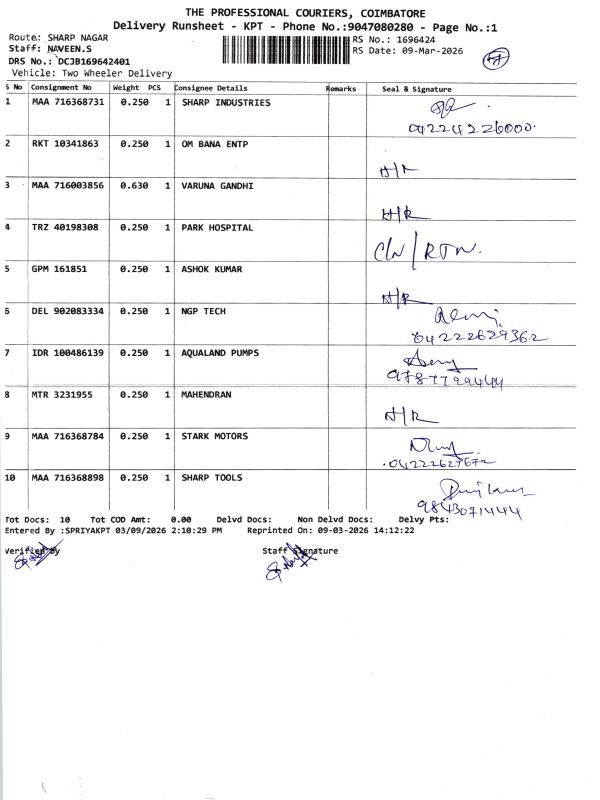 THE PROFESSIONAL COURIERS, COIMBATORE
Delivery Runsheet - KPT - Phone No.:9047080280 - Page No.:1
Route: SHARP NAGAR RS No.: 1696424
Staff: NAVEEN.S RS Date: 09-Mar-2026
DRS No.: DCJB169642401
Vehicle: Two Wheeler Delivery
S No Consignment No Weight PCS Consignee Details Remarks Seal & Signature
1 MAA 716368731 0.250 1 SHARP INDUSTRIES
04224226000.
2 RKT 10341863 0.250 1 OM BANA ENTP
H/R
3 MAA 716003856 0.630 1 VARUNA GANDHI
H/R
4 TRZ 40198308 0.250 1 PARK HOSPITAL
CN/RTN.
5 GPM 161851 0.250 1 ASHOK KUMAR
H/R
6 DEL 902083334 0.250 1 NGP TECH
04222629362
7 IDR 100486139 0.250 1 AQUALAND PUMPS
8 MTR 3231955 0.250 1 MAHENDRAN
H/R
9 MAA 716368784 0.250 1 STARK MOTORS
10 MAA 716368898 0.250 1 SHARP TOOLS
9843071444
Tot Docs: 10 Tot COD Amt: 0.00 Delvd Docs: Non Delvd Docs: Delvy Pts:
Entered By :SPRIYAKPT 03/09/2026 2:10:29 PM Reprinted On: 09-03-2026 14:12:22
Verified By Staff Signature